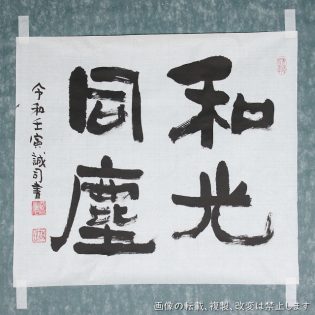 和光
同塵
令和壬寅 誠司書
画像の転載、複製、改変は禁止します